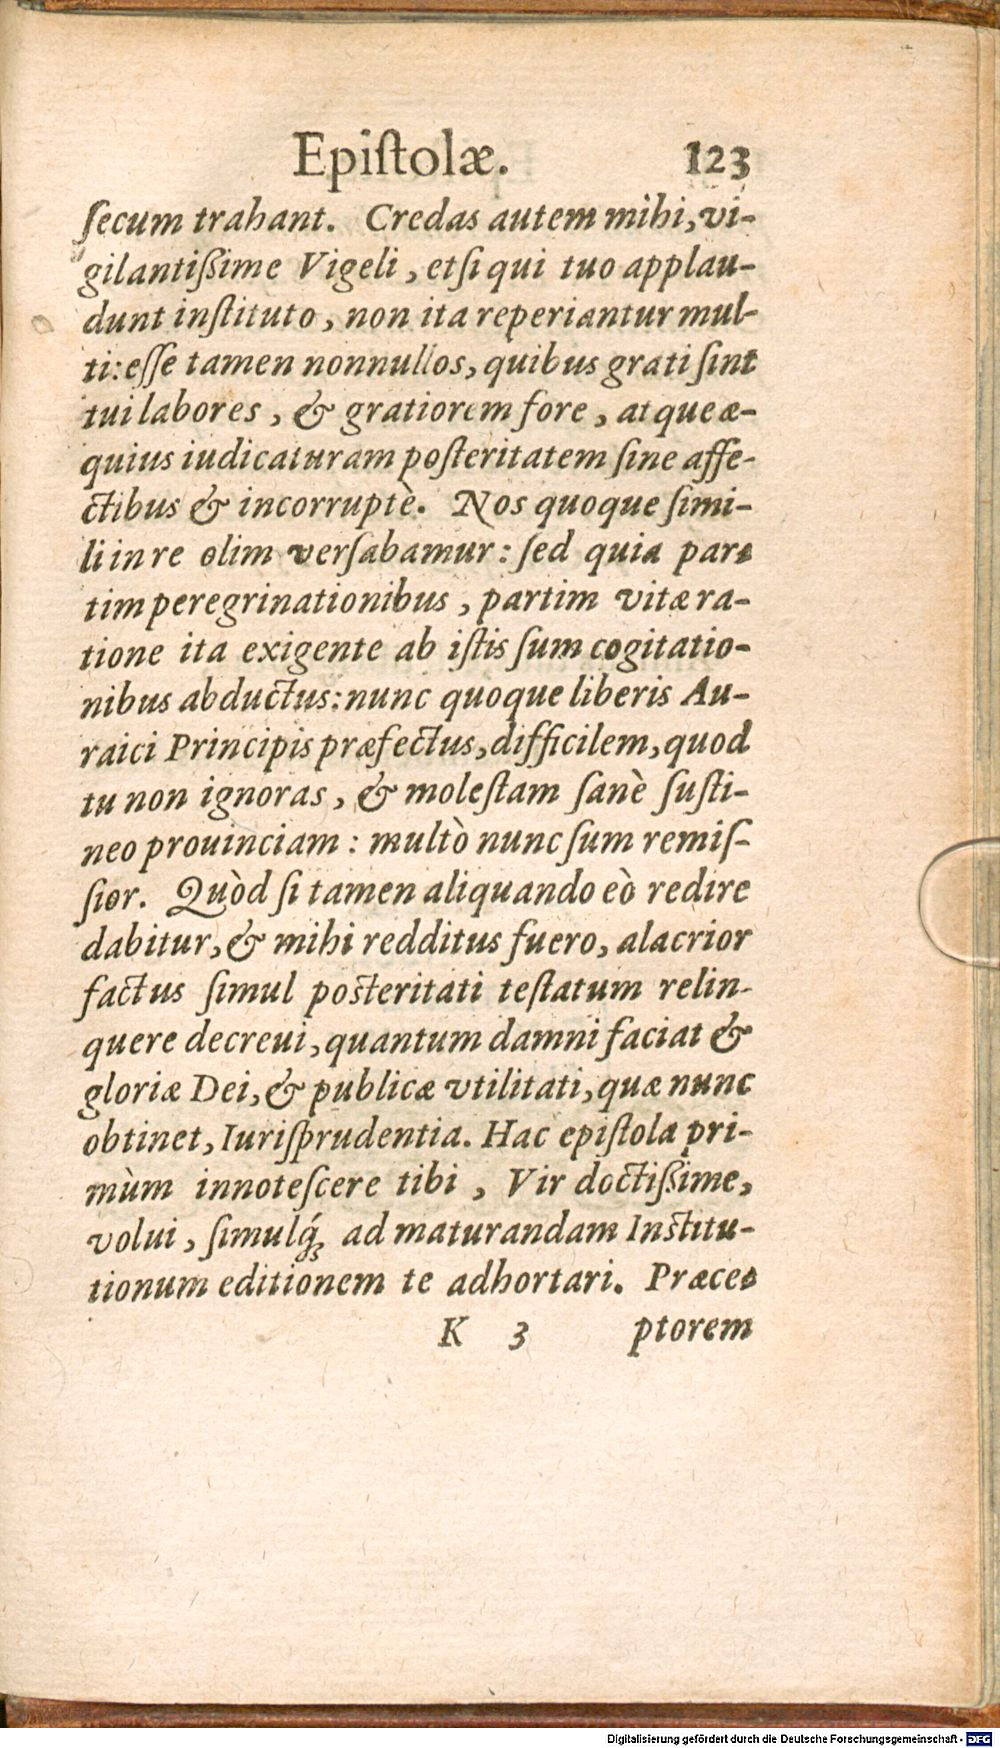 Epiſtolæ. 123
ſecum trahant. Credas autem mihi, vi-
gilantißime Vigeli, etſi qui tuo applau-
dunt inſtituto, non ita reperiantur mul-
ti: eſſe tamen nonnullos, quibus grati ſint
tui labores, & gratiorem fore, atque æ-
quius iudicaturam poſteritatem ſine affe-
ctibus & incorruptè. Nos quoque ſimi-
li in re olim verſabamur: ſed quia par-
tim peregrinationibus, partim vitæ ra-
tione ita exigente ab iſtis ſum cogitatio-
nibus abductus: nunc quoque liberis Au-
raici Principis præfectus, difficilem, quod
tu non ignoras, & moleſtam ſanè ſuſti-
neo prouinciam: multò nunc ſum remiſ-
ſior. Quòd ſi tamen aliquando eò redire
dabitur, & mihi redditus fuero, alacrior
factus ſimul posteritati teſtatum relin-
quere decreui, quantum damni faciat &
gloriæ Dei, & publicæ vtilitati, quæ nunc
obtinet, Iuriſprudentia. Hac epiſtola pri-
mùm innoteſcere tibi, Vir doctißime,
volui, ſimulq́; ad maturandam Institu-
tionum editionem te adhortari. Præce-
K 3 ptorem
Digitalisierung gefördert durch die Deutsche Forschungsgemeinschaft - DFG